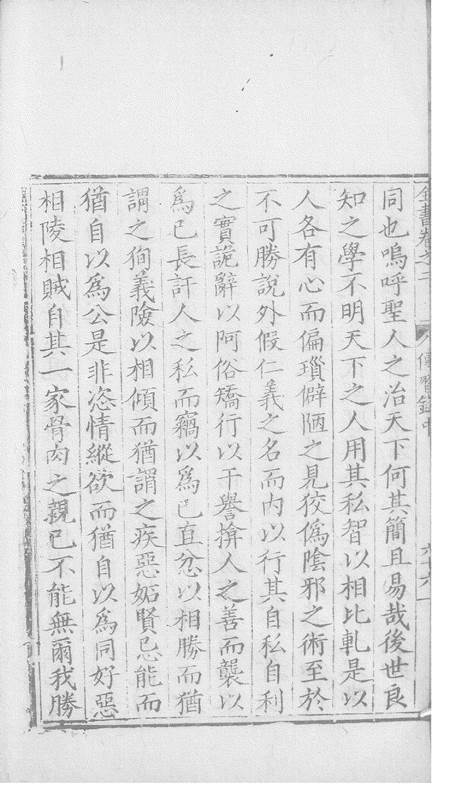 全書卷之二 傳習錄中 六十六
同也嗚呼聖人之治天下何其簡且易哉後世良
知之學不明天下之人用其私智以相比軋是以
人各有心而偏瑣僻陋之見狡僞陰邪之術至於
不可勝說外假仁義之名而內以行其自私自利
之實詭辭以阿俗矯行以干譽揜人之善而襲以
爲已長訐人之私而竊以爲已直忿以相勝而猶
謂之徇義險以相傾而猶謂之疾惡妬賢忌能而
猶自以爲公是非恣情縱欲而猶自以爲同好惡
相陵相賊自其一家骨肉之親已不能無爾我勝